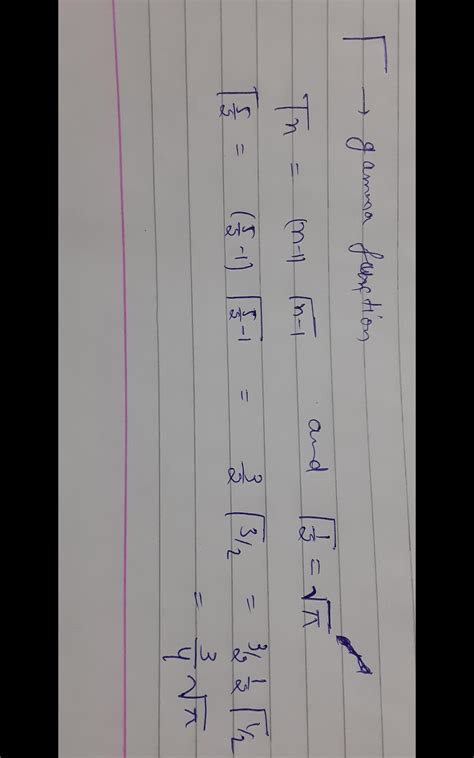 Γ → gamma function
Γn = (n-1) Γn-1 and Γ1/2 = √π
Γ5/2 = (5/2 -1) Γ5/2 -1 = 3/2 Γ3/2 = 3/2 1/2 Γ1/2
= 3/4 √π